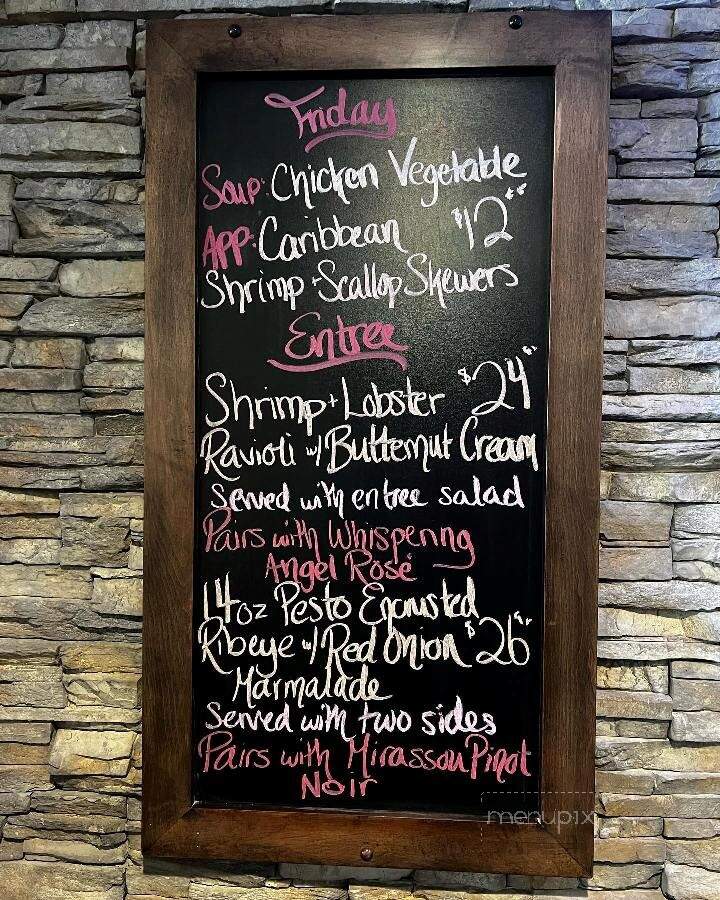 Friday
Soup: Chicken Vegetable
APP: Caribbean $12
Shrimp + Scallop Skewers
Entree
Shrimp + Lobster $24
Ravioli w/ Butternut Cream
Served with entree salad
Pairs with Whispering
Angel Rosé
14oz Pesto Encrusted
Ribeye w/ Red Onion $26
Marmalade
Served with two sides
Pairs with Mirassou Pinot
Noir
menupix